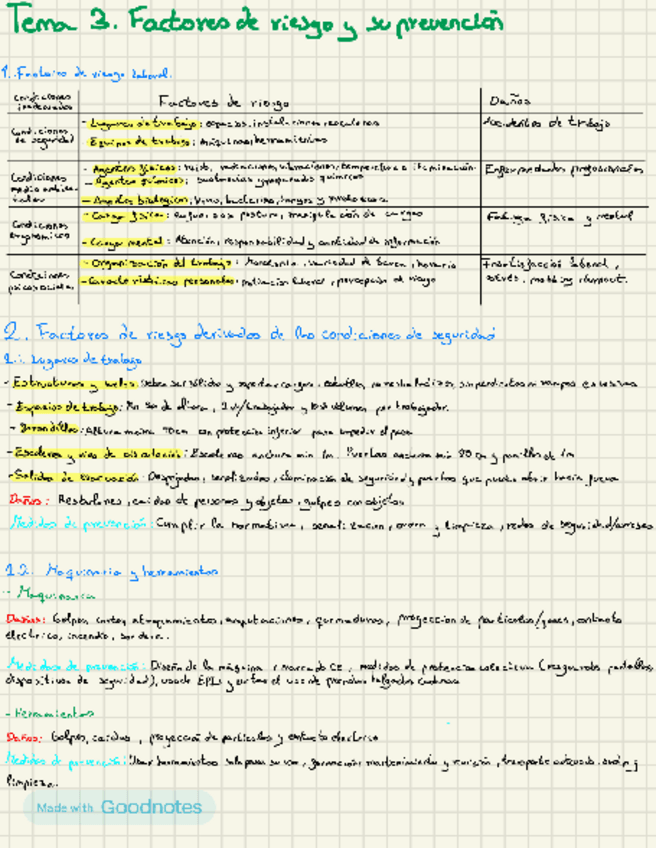 Tema 3. Factores de riesgo y su prevención
1. Factores de riesgo laboral.
Condiciones inadecuadas
Factores de riesgo
Daños
Condiciones de seguridad
- Lugares de trabajo: espacios, instalaciones, escaleras
- Equipos de trabajo: máquinas, herramientas
Accidentes de trabajo
Condiciones medio ambientales
- Agentes físicos: ruido, radiaciones, vibraciones, temperatura e iluminación
- Agentes químicos: sustancias y preparados químicos
- Agentes biológicos: virus, bacterias, hongos y
Enfermedades profesionales
Condiciones ergonómicas
- Carga física: esfuerzos, postura, manipulación de cargas
- Carga mental: Atención, responsabilidad y cantidad de información
Fatiga física y mental
Condiciones psicosociales
- Organización del trabajo: Monotonía, variedad de tarea, horario
- Características personales: laboral, percepción de riesgo
Insatisfacción laboral,
estrés, mobbing, burnout.
2. Factores de riesgo derivados de las condiciones de seguridad
2.1. Lugares de trabajo
- Estructuras y suelos: debe ser sólido y soportar cargas, estables, no resbaladizos, sin pendientes ni rampas excesivas
- Espacios de trabajo: 3m de altura, /trabajador y volumen por trabajador.
- Barandillas: Altura 90cm con protección inferior para impedir el paso
- Escaleras y vías de circulación: Escaleras anchura min 1m. Puertas anchura min 80 cm y pasillos de 1m
- Salidas de evacuación: Despejadas, señalizadas, iluminación de seguridad y puertas que puedan abrir hacia fuera
Daños: Resbalones, caídas de personas y objetos, golpes con objetos
Medidas de prevención: Cumplir la normativa, señalización, orden y limpieza, redes de seguridad/arneses
2.2. Maquinaria y herramientas
- Maquinaria
Daños: Golpes, cortes, atrapamientos, amputaciones, quemaduras, proyección de partículas/gases, contacto
eléctrico, incendio, sordera..
Medidas de prevención: Diseño de la máquina, marcado CE, medidas de protección colectiva (resguardos, pantallas,
dispositivos de seguridad), uso de EPIs y evitar el uso de prendas holgadas
- Herramientas
Daños: Golpes, caídas, proyección de partículas y contacto eléctrico
Medidas de prevención: Usar herramientas solo para su uso, formación, mantenimiento y revisión, transporte adecuado, orden y
limpieza.
Made with Goodnotes